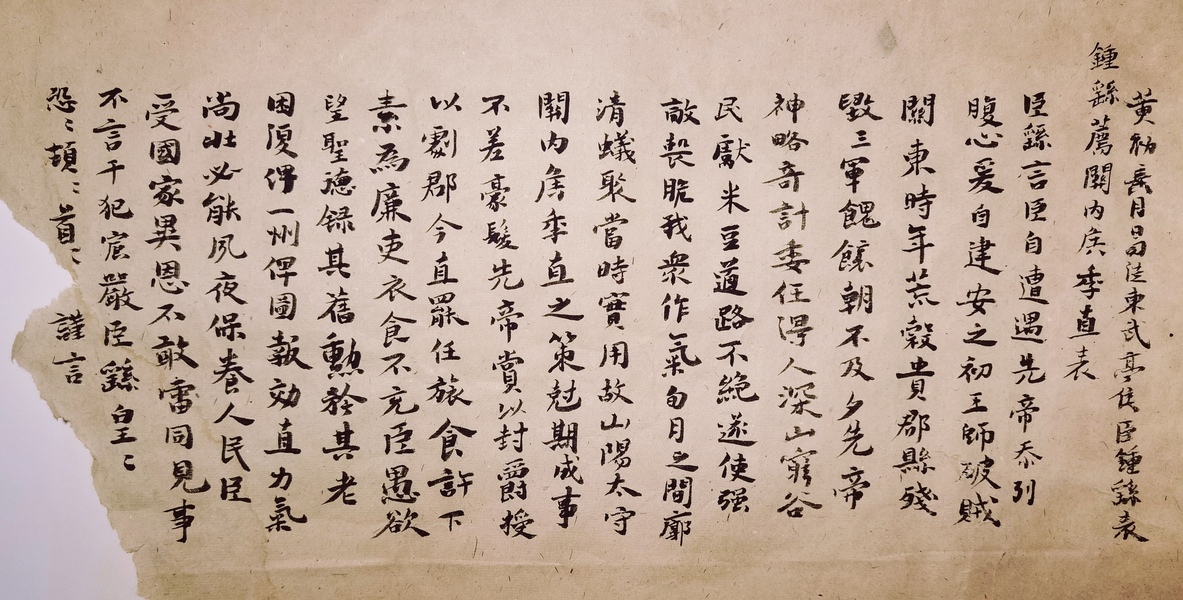 黃初二年八月日司徒東武亭侯臣鍾繇表
鍾繇薦關內侯季直表
臣繇言臣自遭遇先帝忝列
腹心爰自建安之初王師破賊
關東時年荒穀貴郡縣殘
毀三軍餽饟朝不及夕先帝
神略奇計委任得人深山窮谷
民獻米豆道路不絕遂使强
敵喪膽我衆作氣旬月之間廓
清蟻聚當時實用故山陽太守
關內侯季直之策尅期成事
不差豪髮先帝賞以封爵授
以劇郡今直罷任旅食許下
素爲廉吏衣食不充臣愚欲
望聖德錄其舊勳矜其老
困復俾一州俾圖報效直力氣
尚壯必能夙夜保養人民臣
受國家異恩不敢雷同見事
不言干犯宸嚴臣繇皇〻
恐〻頓〻首〻謹言